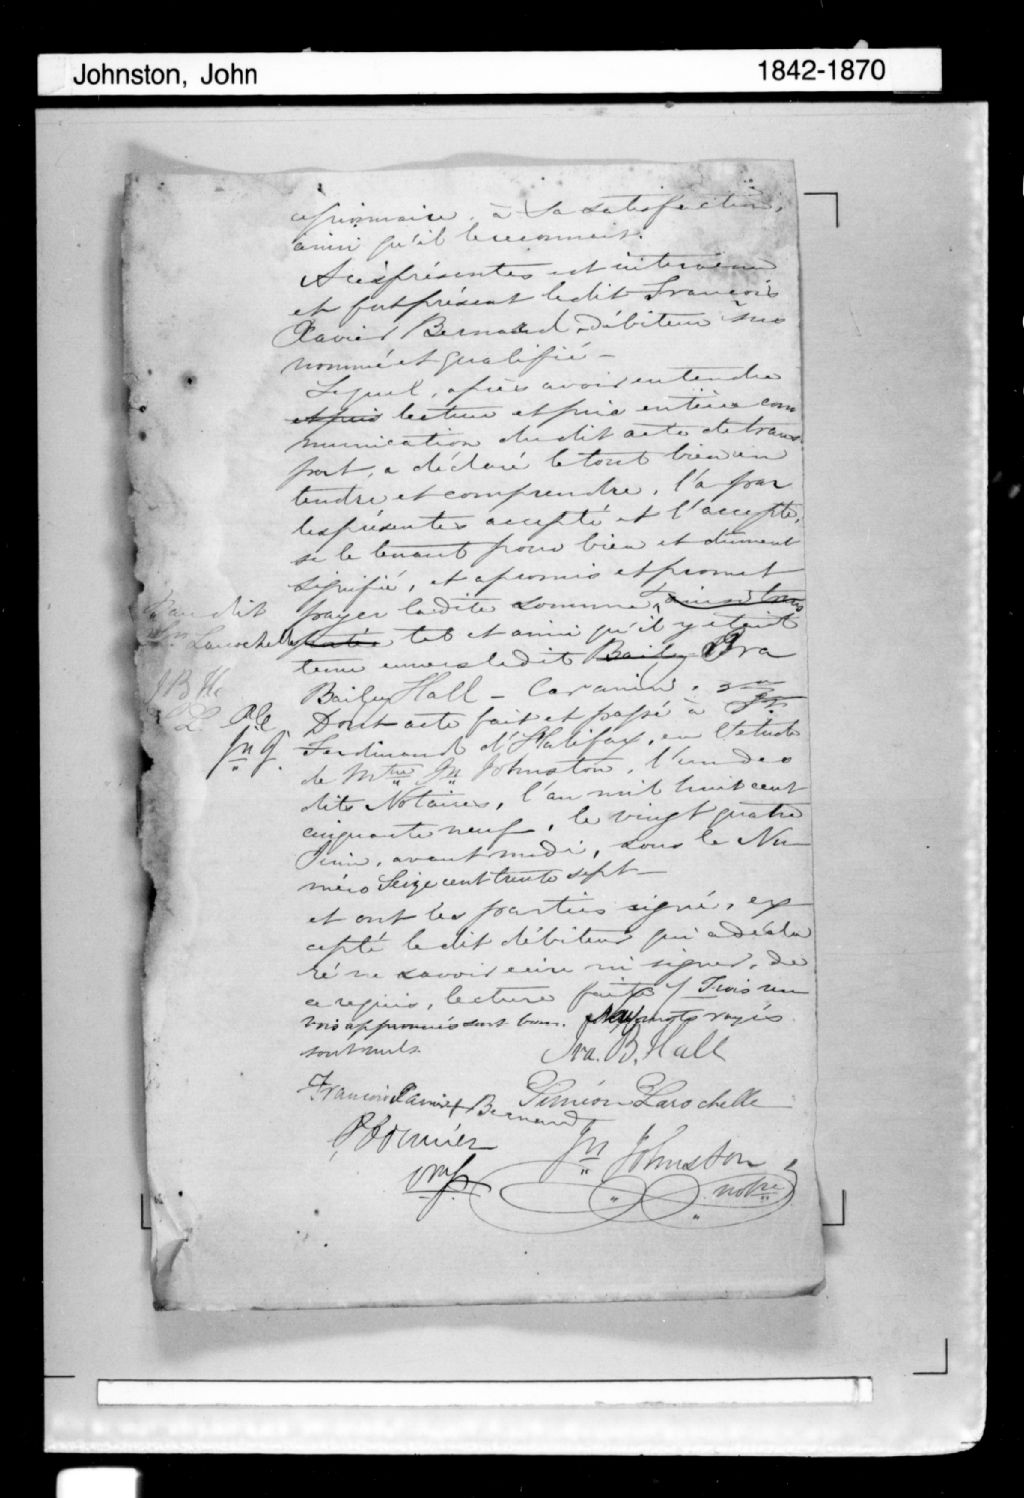 Johnston, John 1842-1870
cessionnaire, à sa satisfaction,
ainsi qu'il le reconnait.
A ces présentes est intervenu
et fut présent le dit François
Xavier Bernard, débiteur sus
nommé et qualifié —
Lequel, après avoir entendu
et pris lecture et pris entière com
munication du dit acte de trans
port, a déclaré le tout bien en
tendre et comprendre, l'a par
les présentes accepté et l'accepte,
se le tenant pour bien et dument
signifié, et a promis et promet
payer la dite somme, au dit Sn. Larochelle
tel et ainsi qu'il y était
tenu envers le dit Baily Ira
Bailey Hall —
J B H
S L
Jn J.
Dont acte fait et passé à St.
Ferdinand d'Halifax, en l'etude
de Mtre Jn Johnston, l'un des
dits Notaires, l'an mil huit cent
cinquante neuf, le vingt quatre
Juin, avant midi, sous le Nu-
méro Seize cent trente sept —
et ont les parties signé, ex
cepté le dit débiteur qui a décla
ré ne savoir ecrire ni signer, de
ce requis, lecture faite / Trois ren
vois approuvés sont bons. Neuf mots rayés
sont nuls.
Ira. B. Hall
François Xavier Bernard
Siméon Larochelle
Jn Johnston
notre